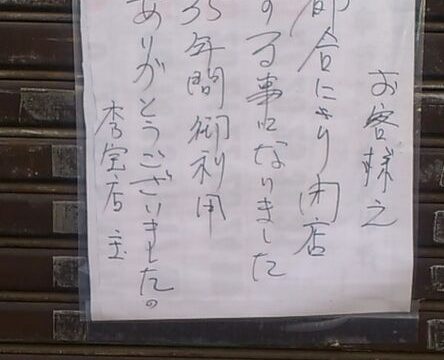 お客様え
都合により閉店
する事になりました
35年間御利用
ありがとうございましたの
店主